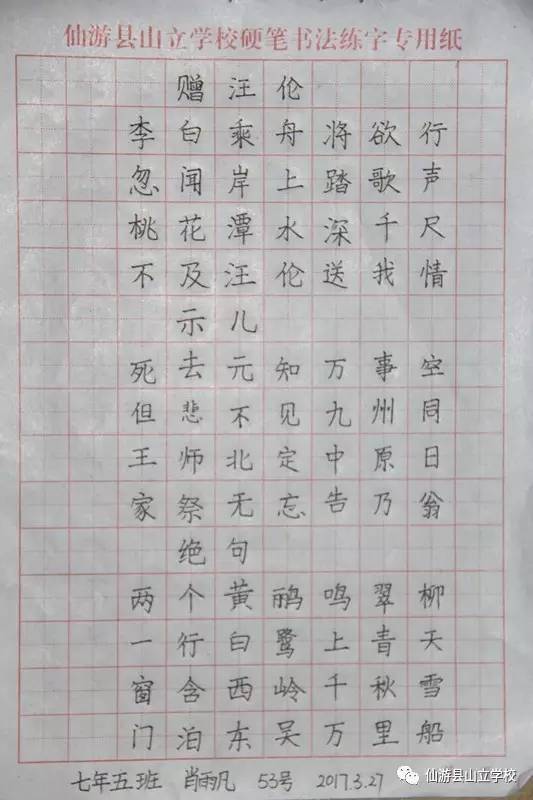 仙游县山立学校硬笔书法练字专用纸
赠汪伦
李白乘舟将欲行
忽闻岸上踏歌声
桃花潭水深千尺
不及汪伦送我情
示儿
死去元知万事空
但悲不见九州同
王师北定中原日
家祭无忘告乃翁
绝句
两个黄鹂鸣翠柳
一行白鹭上青天
窗含西岭千秋雪
门泊东吴万里船
七年五班 肖雨凡 53号 2017.3.27
仙游县山立学校